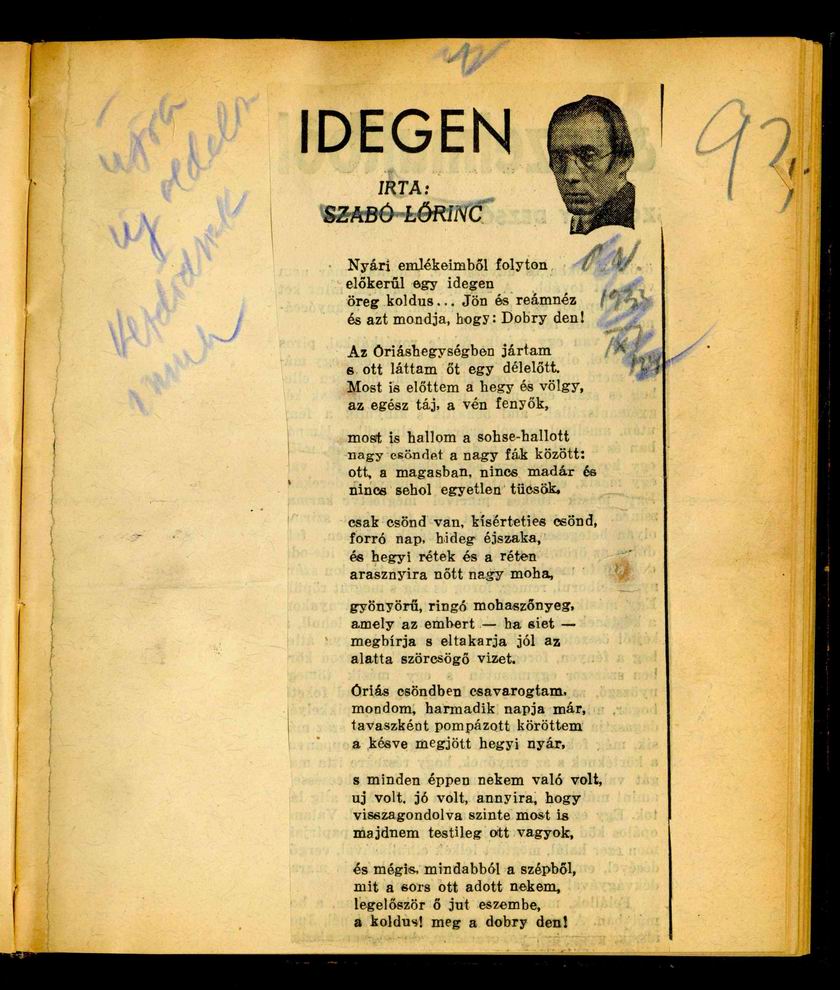 IDEGEN
IRTA:
SZABÓ LŐRINC
93
Nyári emlékeimből folyton
előkerűl egy idegen
öreg koldus... Jön és reámnéz
és azt mondja, hogy: Dobry den!
Az Óriáshegységben jártam
s ott láttam őt egy délelőtt.
Most is előttem a hegy és völgy,
az egész táj, a vén fenyők,
most is hallom a sohse-hallott
nagy csöndet a nagy fák között:
ott, a magasban, nincs madár és
nincs sehol egyetlen tücsök,
csak csönd van, kísérteties csönd,
forró nap, hideg éjszaka,
és hegyi rétek és a réten
arasznyira nőtt nagy moha,
gyönyörű, ringó mohaszőnyeg,
amely az embert — ha siet —
megbírja s eltakarja jól az
alatta szörcsögő vizet.
Óriás csöndben csavarogtam,
mondom, harmadik napja már,
tavaszként pompázott köröttem
a késve megjött hegyi nyár,
s minden éppen nekem való volt,
uj volt, jó volt, annyira, hogy
visszagondolva szinte most is
majdnem testileg ott vagyok,
és mégis, mindabból a szépből,
mit a sors ott adott nekem,
legelőször ő jut eszembe,
a koldus! meg a dobry den!